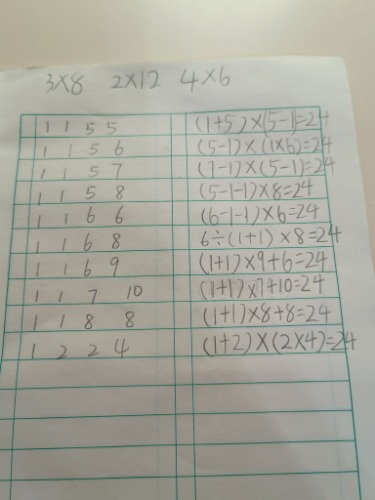 3×8 2×12 4×6
1 1 5 5 (1+5)×(5-1)=24
1 1 5 6 (5-1)×(1×6)=24
1 1 5 7 (7-1)×(5-1)=24
1 1 5 8 (5-1-1)×8=24
1 1 6 6 (6-1-1)×6=24
1 1 6 8 6÷(1+1)×8=24
1 1 6 9 (1+1)×9+6=24
1 1 7 10 (1+1)×7+10=24
1 1 8 8 (1+1)×8+8=24
1 2 2 4 (1+2)×(2×4)=24